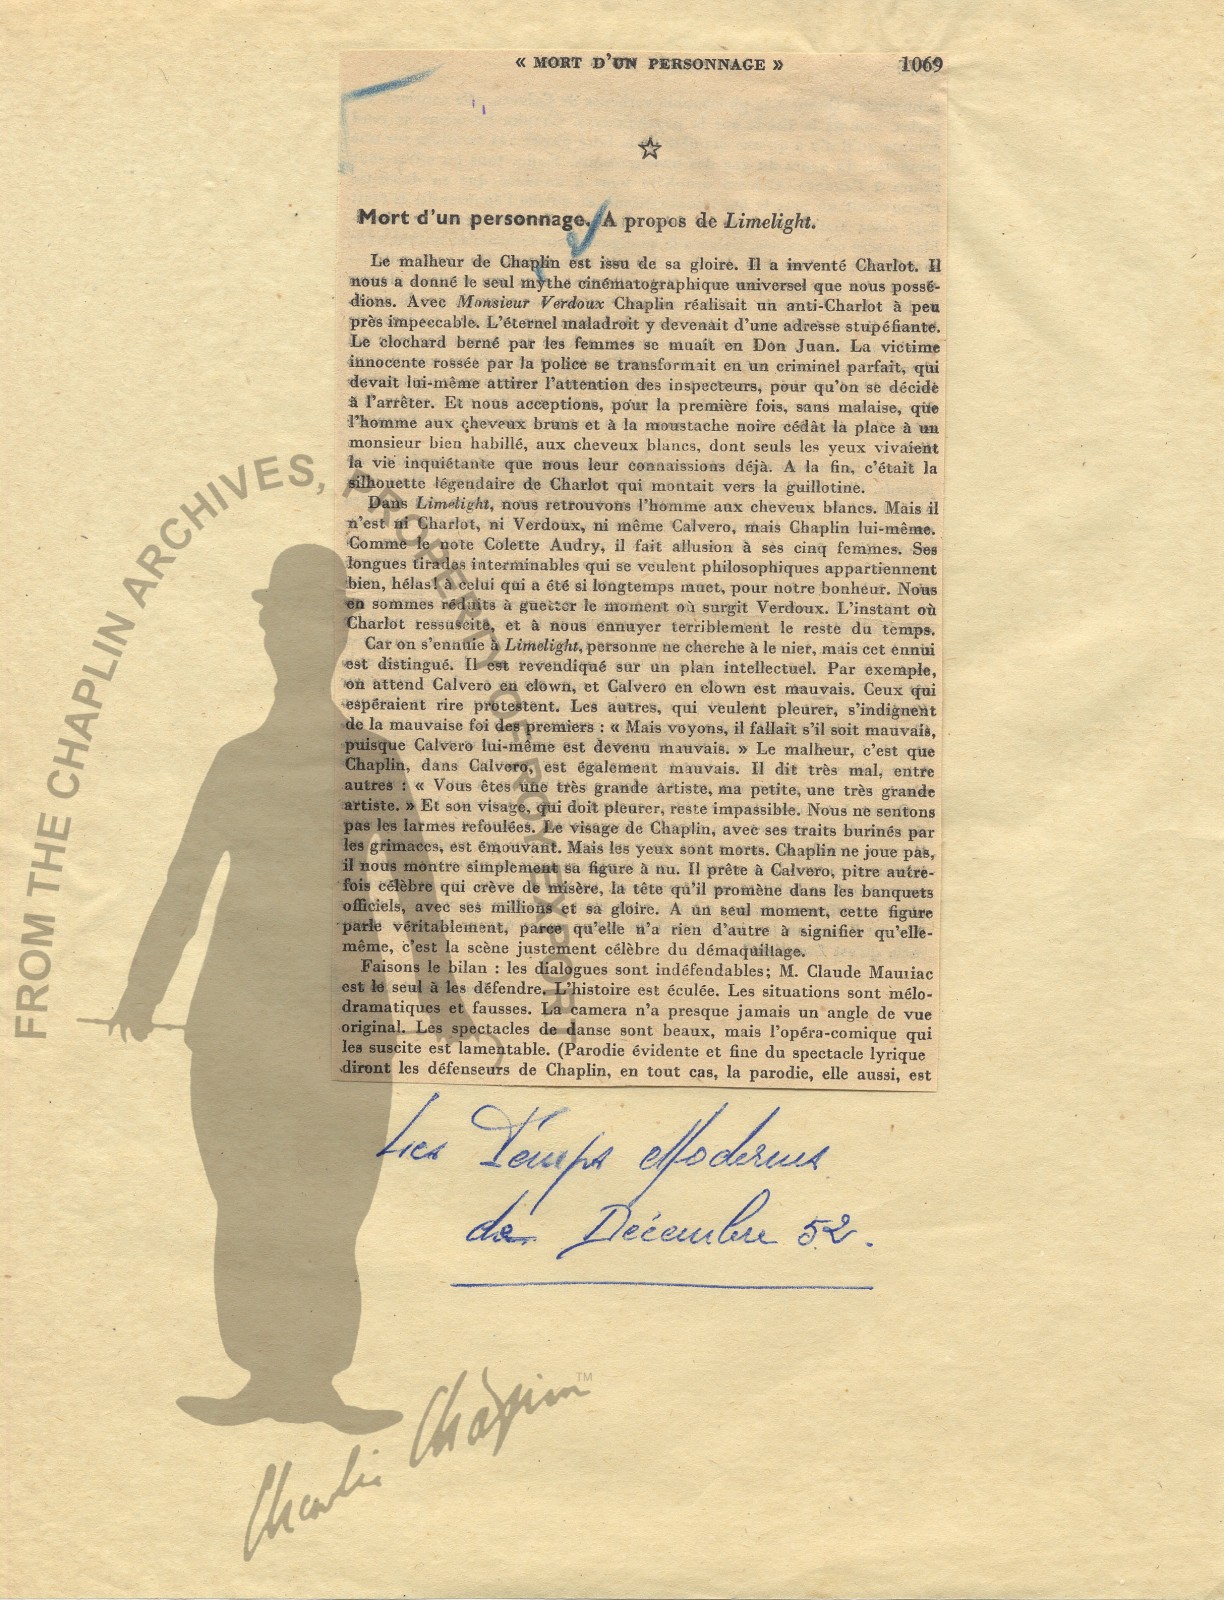 « MORT D'UN PERSONNAGE » 1069
Mort d'un personnage. A propos de Limelight.
Le malheur de Chaplin est issu de sa gloire. Il a inventé Charlot. Il
nous a donné le seul mythe cinématographique universel que nous possé-
dions. Avec Monsieur Verdoux Chaplin réalisait un anti-Charlot à peu
près impeccable. L'éternel maladroit y devenait d'une adresse stupéfiante.
Le clochard berné par les femmes se muait en Don Juan. La victime
innocente rossée par la police se transformait en un criminel parfait, qui
devait lui-même attirer l'attention des inspecteurs, pour qu'on se décide
à l'arrêter. Et nous acceptions, pour la première fois, sans malaise, que
l'homme aux cheveux bruns et à la moustache noire cédât la place à un
monsieur bien habillé, aux cheveux blancs, dont seuls les yeux vivaient
la vie inquiétante que nous leur connaissions déjà. A la fin, c'était la
silhouette légendaire de Charlot qui montait vers la guillotine.
Dans Limelight, nous retrouvons l'homme aux cheveux blancs. Mais il
n'est ni Charlot, ni Verdoux, ni même Calvero, mais Chaplin lui-même.
Comme le note Colette Audry, il fait allusion à ses cinq femmes. Ses
longues tirades interminables qui se veulent philosophiques appartiennent
bien, hélas! à celui qui a été si longtemps muet, pour notre bonheur. Nous
en sommes réduits à guetter le moment où surgit Verdoux. L'instant où
Charlot ressuscite, et à nous ennuyer terriblement le reste du temps.
Car on s'ennuie à Limelight, personne ne cherche à le nier, mais cet ennui
est distingué. Il est revendiqué sur un plan intellectuel. Par exemple,
on attend Calvero en clown, et Calvero en clown est mauvais. Ceux qui
espéraient rire protestent. Les autres, qui veulent pleurer, s'indignent
de la mauvaise foi des premiers : « Mais voyons, il fallait s'il soit mauvais,
puisque Calvero lui-même est devenu mauvais. » Le malheur, c'est que
Chaplin, dans Calvero, est également mauvais. Il dit très mal, entre
autres : « Vous êtes une très grande artiste, ma petite, une très grande
artiste. » Et son visage, qui doit pleurer, reste impassible. Nous ne sentons
pas les larmes refoulées. Le visage de Chaplin, avec ses traits burinés par
les grimaces, est émouvant. Mais les yeux sont morts. Chaplin ne joue pas,
il nous montre simplement sa figure à nu. Il prête à Calvero, pitre autre-
fois célèbre qui crève de misère, la tête qu'il promène dans les banquets
officiels, avec ses millions et sa gloire. A un seul moment, cette figure
parle véritablement, parce qu'elle n'a rien d'autre à signifier qu'elle-
même, c'est la scène justement célèbre du démaquillage.
Faisons le bilan : les dialogues sont indéfendables; M. Claude Mauriac
est le seul à les défendre. L'histoire est éculée. Les situations sont mélo-
dramatiques et fausses. La camera n'a presque jamais un angle de vue
original. Les spectacles de danse sont beaux, mais l'opéra-comique qui
les suscite est lamentable. (Parodie évidente et fine du spectacle lyrique
diront les défenseurs de Chaplin, en tout cas, la parodie, elle aussi, est
Les Temps Modernes
de Décembre 52.
FROM THE CHAPLIN ARCHIVES, PROPERTY OF ROY EXPORT
Charlie Chaplin TM